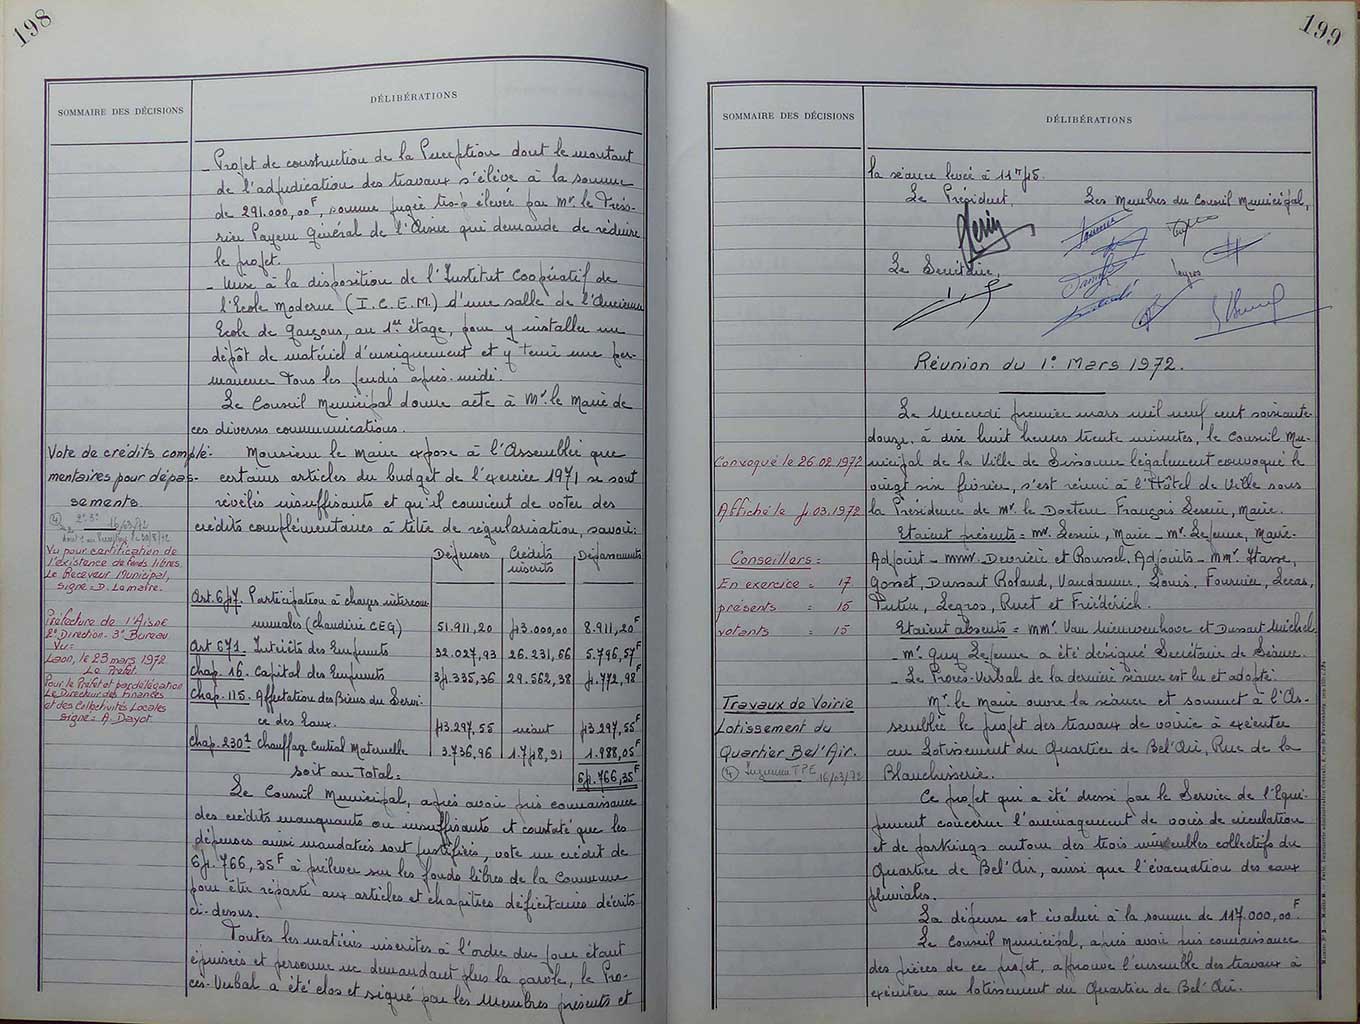 198
SOMMAIRE DES DÉCISIONS
DÉLIBÉRATIONS
- Projet de construction de la Perception dont le montant
de l'adjudication des travaux s'élève à la somme
de 291.000,00F, somme jugée trop élevée par Mr. le Tréso-
rier Payeur Général de l'Aisne qui demande de réduire
le projet.
- Mise à la disposition de l'Institut Coopératif de
l'Ecole Moderne (I.C.E.M.) d'une salle de l'Ancienne
Ecole de Garçons, au 1er étage, pour y installer un
dépôt de matériel d'enseignement et y tenir une per-
manence tous les jeudis après-midi.
Le Conseil Municipal donne acte à Mr. le Maire de
ces diverses communications.
Vote de crédits complé-
mentaires pour dépas-
sements.
④ 2e 3e
16/03/72
Vu pour certification de
l'existence de fonds libres.
Le Receveur Municipal,
signé = D. Lemaire.
Préfecture de l'Aisne
2e Direction. 3e Bureau
Vu =
Laon, le 23 mars 1972
Le Préfet.
Pour le Préfet et par délégation
Le Directeur des Finances
et des Collectivités Locales
signé = A. Dayot.
Monsieur le Maire expose à l'Assemblée que
certains articles du budget de l'exercice 1971 se sont
révélés insuffisants et qu'il convient de voter des
crédits complémentaires à titre de régularisation, savoir:
Dépenses Crédits inscrits Dépassements
Art. 647. Participation à charges intercom-
munales (chaudière CEG) 51.911,20 43.000,00 8.911,20F
Art 671. Intérêts des Emprunts 32.027,93 26.231,66 5.796,57F
Chap. 16. Capital des Emprunts 34.335,36 29.562,38 4.772,98F
Chap. 115. Affectation des Biens du Servi-
ce des Eaux. 43.297,55 néant 43.297,55F
Chap. 2301 Chauffage Central Maternelle 3.736,96 1.748,91 1.988,05F
soit au Total = 64.766,35F
Le Conseil Municipal, après avoir pris connaissance
des crédits manquants ou insuffisants et constaté que les
dépenses ainsi mandatées sont justifiées, vote un crédit de
64.766,35F à prélever sur les fonds libres de la Commune
pour être réparti aux articles et chapitres déficitaires décrits
ci-dessus.
Toutes les matières inscrites à l'ordre du jour étant
épuisées et personne ne demandant plus la parole, le Pro-
cès-Verbal a été clos et signé par les Membres présents et
199
SOMMAIRE DES DÉCISIONS
DÉLIBÉRATIONS
la séance levée à 11h45.
Le Président, Les Membres du Conseil Municipal,
Le Secrétaire,
Réunion du 1er Mars 1972.
Le Mercredi premier mars mil neuf cent soixante-
douze, à dix huit heures trente minutes, le Conseil Mu-
nicipal de la Ville de Sissonne légalement convoqué le
vingt six février, s'est réuni à l'Hôtel de Ville sous
la Présidence de Mr. le Docteur François Lesein, Maire.
Convoqué le 26.02.1972
Affiché le 4.03.1972
Conseillers =
En exercice = 17
présents = 15
votants = 15
Etaient présents = Mr. Lesein, Maire - Mr. Lejeune, Maire-
Adjoint - MMrs. Devrière et Roussel, Adjoints - MMr. Harse,
Gosset, Dussart Roland, Vandamme, Louis, Fournier, Lecas,
Putieu, Legros, Ruet et Frédérich.
Etaient absents = MMr. Van Nieuwenhove et Dussart Michel.
- Mr. Guy Lejeune a été désigné Secrétaire de Séance.
- Le Procès-Verbal de la dernière séance est lu et adopté.
Travaux de Voirie
Lotissement du
Quartier Bel'Air.
④ TPE 16/03/72
Mr. le Maire ouvre la séance et soumet à l'As-
semblée le projet des travaux de voirie à exécuter
au Lotissement du Quartier de Bel'Air, Rue de la
Blanchisserie.
Ce projet qui a été dressé par le Service de l'Equi-
pement concerne l'aménagement de voies de circulation
et de parkings autour des trois immeubles collectifs du
Quartier de Bel'Air, ainsi que l'évacuation des eaux
pluviales.
La dépense est évaluée à la somme de 117.000,00F.
Le Conseil Municipal, après avoir pris connaissance
des pièces de ce projet, approuve l'ensemble des travaux à
exécuter au lotissement du Quartier de Bel'Air.